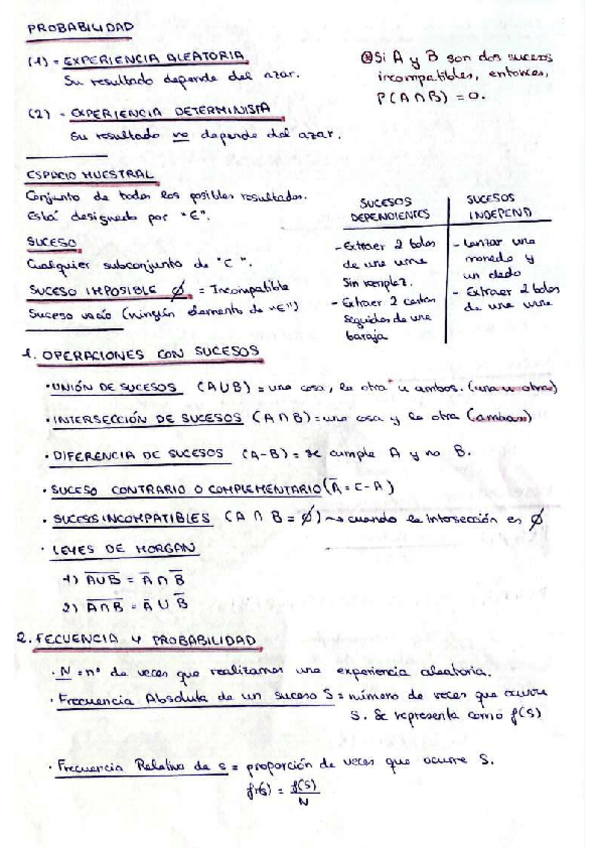 PROBABILIDAD
(1) - EXPERIENCIA ALEATORIA
Su resultado depende del azar.
@Si A y B son dos sucesos
incompatibles, entonces,
P(A∩B) = 0.
(2) - EXPERIENCIA DETERMINISTA
Su resultado no depende del azar.
ESPACIO MUESTRAL
Conjunto de todos los posibles resultados.
Está designado por "E".
SUCESO
Cualquier subconjunto de "E".
SUCESO IMPOSIBLE Ø = Incompatible
Suceso vacío (ningún elemento de "E")
SUCESOS
DEPENDIENTES
- Extraer 2 bolas
de una urna
Sin remplez.
- Extraer 2 cartas
seguidas de una
baraja
SUCESOS
INDEPEND
- Lanzar una
moneda y
un dado
- Extraer 2 bolas
de una urna
1. OPERACIONES CON SUCESOS
· UNIÓN DE SUCESOS (A∪B) = una cosa, la otra u ambas. (una u otra)
· INTERSECCIÓN DE SUCESOS (A∩B) = una cosa y la otra (ambas)
· DIFERENCIA DE SUCESOS (A-B) = se cumple A y no B.
· SUCESO CONTRARIO O COMPLEMENTARIO (Ā = E - A)
· SUCESOS INCOMPATIBLES (A ∩ B = Ø) → cuando la intersección es Ø
· LEYES DE MORGAN
1) A̅∪̅B̅ = Ā ∩ B̅
2) A̅∩̅B̅ = Ā ∪ B̅
2. FECUENCIA Y PROBABILIDAD
· N = nº de veces que realizamos una experiencia aleatoria.
· Frecuencia Absoluta de un suceso S = número de veces que ocurre
S. Se representa como f(S)
· Frecuencia Relativa de S = proporción de veces que ocurre S.
fr(s) = f(S)
N